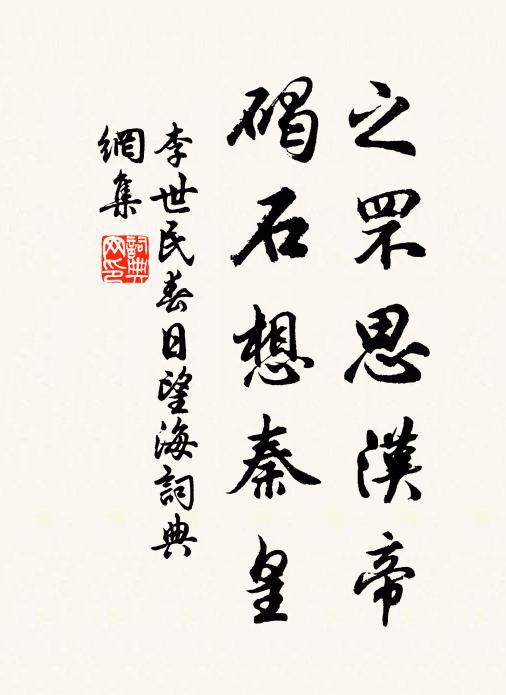 之罘思漢帝
碣石想秦皇
李世民春日望海詞典
網集
詞典網印